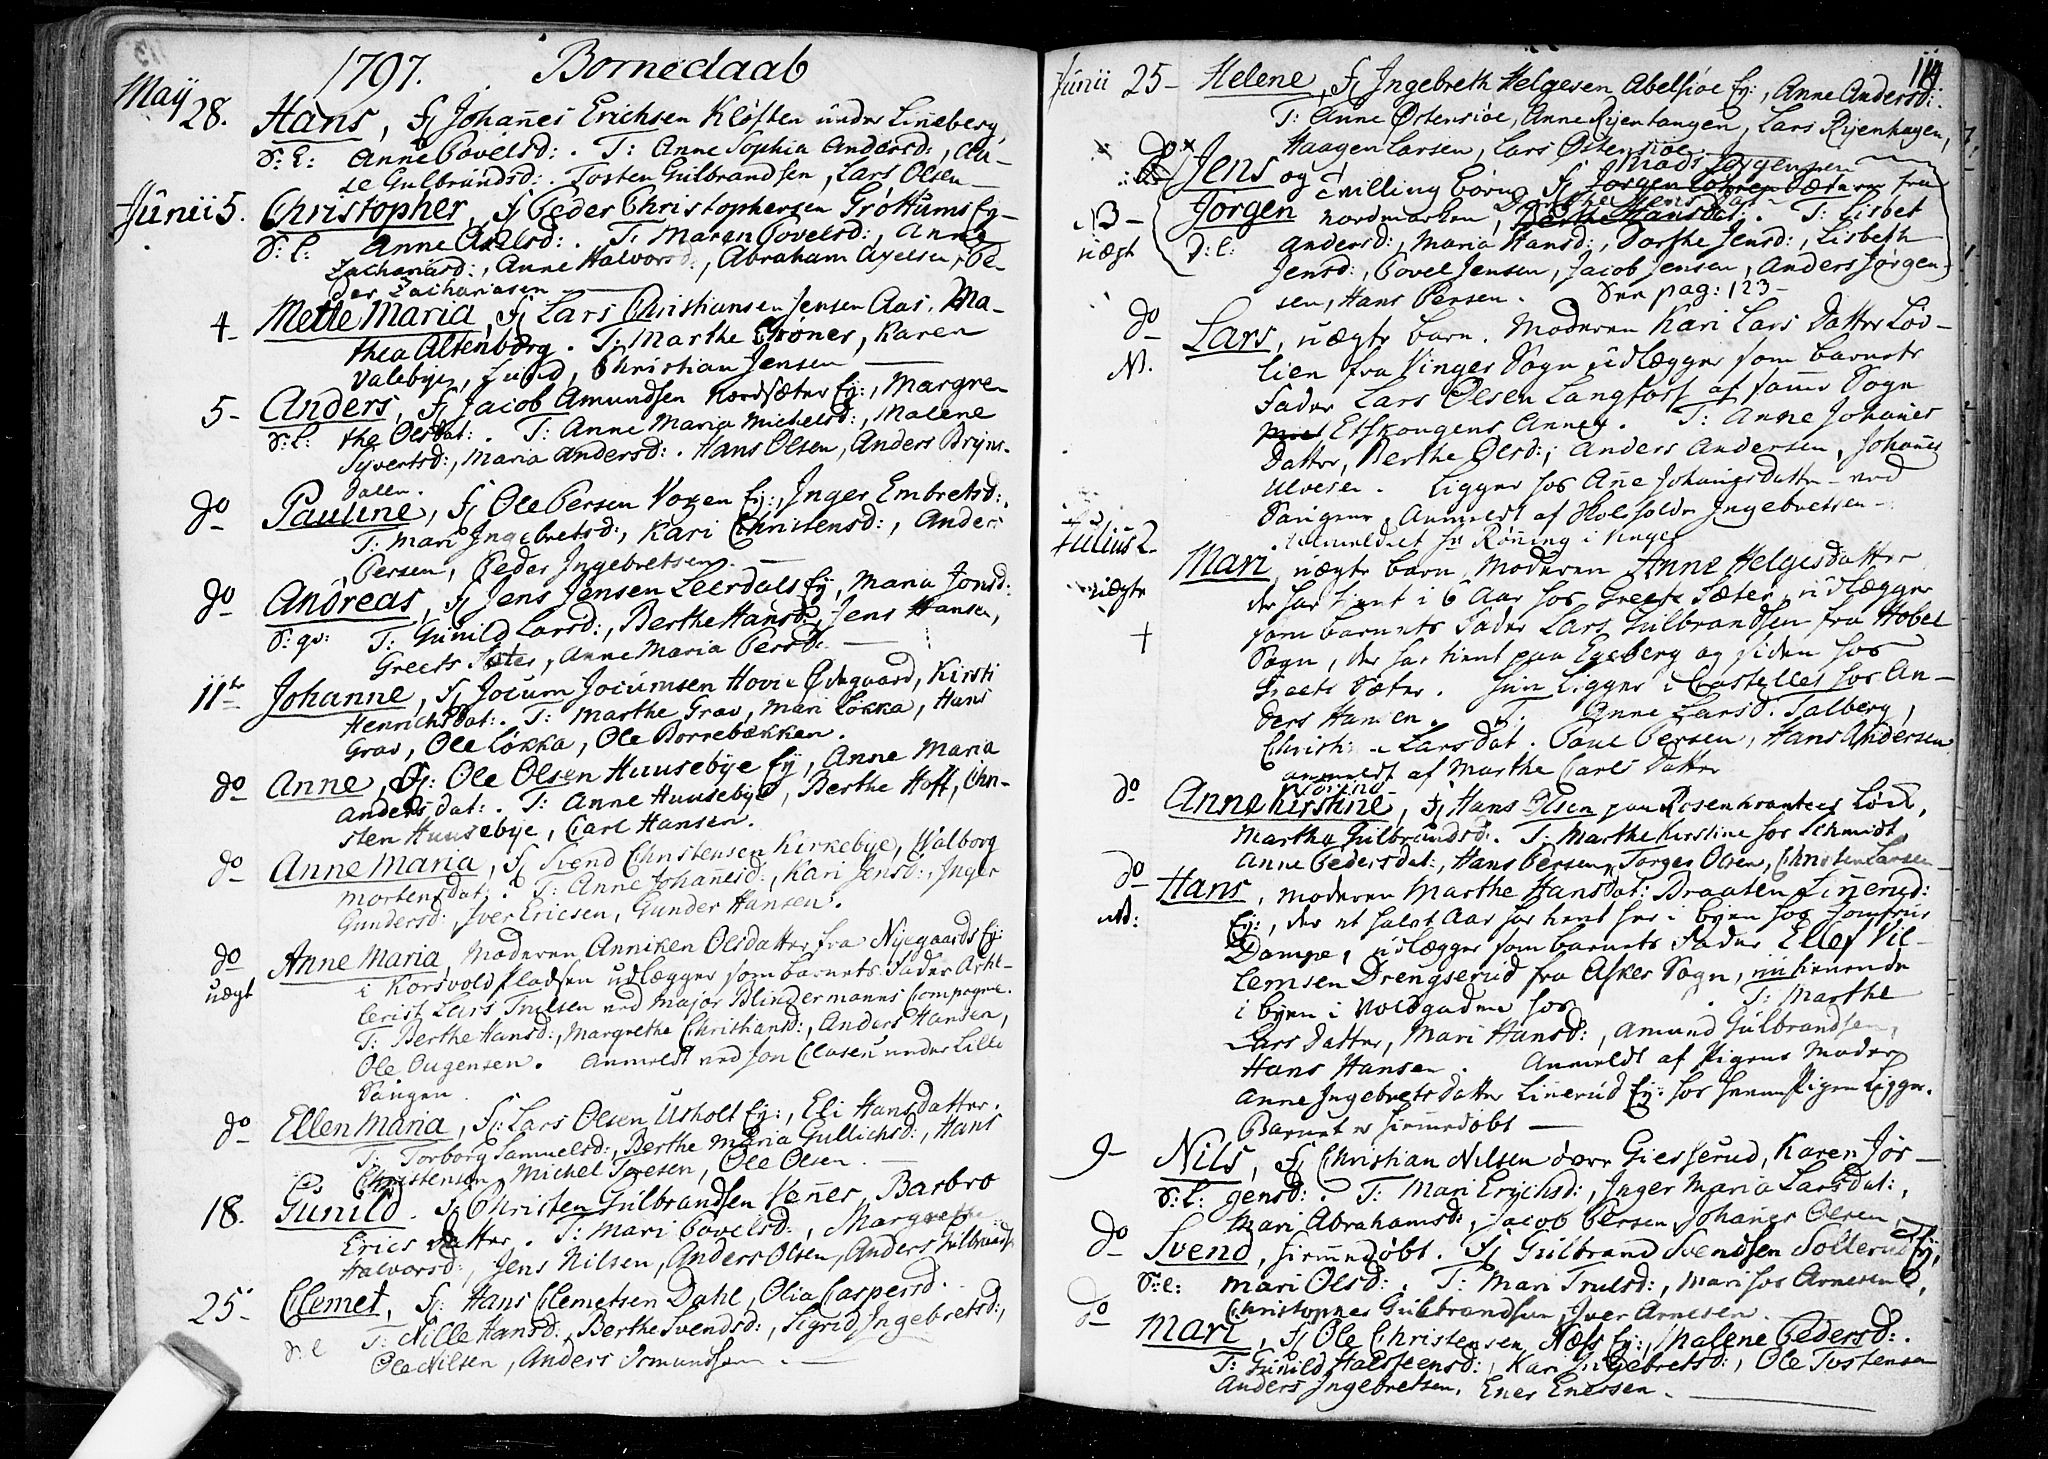 1797. Bornedaab
Maij 28. Hans, Fj Johanes Erichsen Kløften under Lineberg,
D: l: Anne Povelsd:. T: Anne Sophia Andersd:, An-
ne Gulbrandsd:. Tosten Gulbrandsen, Lars Olsen
Junii 5. Christopher, Fj Peder Christophersen Grøttums Ej-
D: l: Anne Axelsd:. T: Maren Povelsd:, Anne
Zachariasd:, Anne Halvorsd:, Abraham Axelsen, Pe-
der Zachariasen
4- Mette Maria, Fj Lars Christiansen Jensen Aas, Ma-
thea Altenborg. T: Marthe Grøner, Karen
Valebye, Lund, Christian Jensen
5- Anders, Fj Jacob Amundsen Nordsæter Ej:, Margre-
D: l: the Olsdat:. T: Anne Maria Michelsd:, Malene
Syvertsd:, Maria Andersd:. Hans Olsen, Anders Bryns-
dalen.
do Pauline, Fj Ole Persen Voxen Ej:, Inger Embretsd:
T: Mari Ingebretsd:, Kari Christensd:, Anders
Persen, Peder Ingebretsen.
do Andreas, Fj Jens Jensen Leerdals Ej, Maria Jonsd:
T: Gunild Larsd:, Berthe Hansd:, Jens Hansen,
Greets Sæter, Anne Maria Persd:
11te Johanne, Fj Jocum Jocumsen Hovie Ødegaard, Kirsti
Henrichsdat:. T: Marthe Grav, Mari Løkka, Hans
Grav, Ole Løkka, Ole Borrebækken.
do Anne, Fj: Ole Olsen Huusebye Ej, Anne Maria
Andersdat:. T: Anne Huusebye, Berthe Hoff, Chri-
sten Huusebye, Carl Hansen.
do Anne Maria, Fj Svend Christensen Kirkebye, Valborg
Mortensdat:. T: Anne Johanesd:, Kari Jensd:, Inger
Gundersd:, Iver Ericsen, Gunder Hansen.
do Anne Maria Moderen Anniken Olsdatter fra Nyegaards Ej:
uægt i Korsvold Pladsen udlægger som barnets Fader Artil-
lerist Lars Trulsen ved Major Blindermanns Compagnie.
T: Berthe Hansd:, Margrethe Christiansd:, Anders Hansen,
Ole Ougensen. Anmeldt ved Jon Clasen under Lille
Sangen.
do Ellen Maria, Fj: Lars Olsen Usholt Ej:, Eli Hansdatter.
T: Torborg Samuelsd:, Berthe Maria Gullichsd:, Hans
Christensen, Michel Toresen, Ole Olsen.
18. Gunild. Fj Christen Gulbrandsen Venner, Barbro
Erics datter. T: Mari Povelsd:, Margrethe
Halvorsd:, Jens Nilsen, Anders Olsen, Anders Gulbrands:
25- Clemet, Fj: Hans Clemetsen Dahl, Olia Caspersd.
D: l T: Nille Hansd:, Berthe Svendsd:, Sigrid Ingebretsd:,
Ole Nilsen, Anders Osmundsen.
114
Junii 25- Helene, Fj Ingebreth Helgesen Abelsiøe Ej:, Anne Andersd:.
T: Anne Østensiøe, Anne Ryentangen, Lars Ryenhagen,
Haagen Larsen, Lars Østensiøe
do Jens og Tvilling børn Fj Mads Jørgensen fra
NB- Jørgen Nordmarken, Dorthe Jens dat. T: Lisbet
uægt D: l: Andersd:, Maria Hansd:, Dorthe Jensd:, Lisbeth
Jensd:, Povel Jensen, Jacob Jensen, Anders Jørgen-
sen, Hans Persen. See pag: 123-
do Lars, uægte barn. Moderen Kari Lars Datter Løv-
N. lien fra Vinger Sogn udlægger som barnets
Fader Lars Olsen Langfos af same Sogn
Eidskougens Annex. T: Anne Johanes
Datter, Berthe Olsd:, Anders Andersen, Johanes
Ulvesen. Ligger hos Ane Johanesdatter ved
Sangene, Anmeldt af Ingebretsen
Julius 2. Mari, uægte barn, Moderen Anne Helgesdatter
uægte der har tient i 6 Aar hos Greets Sæter, udlægger
+ som barnets Fader Lars Gulbrandsen fra Hobel
Sogn, der har tient paa Egeberg og siden hos
Greets Sæter. Hun ligger i Castellet hos An-
ders Hansen. T: Anne Larsd. Talberg,
Larsdat. Poul Persen, Hans Andersen
anmeldt af Marthe Carls Datter
do Anne Kirstine, Fj Hans Olsen paa Rosenkrantzes Løk,
Marthe Gulbrandsd:. T: Marthe Kirstine hos Schmidt,
Anne Pedersdat:, Hans Persen, Torger Olsen, Christen Larsen
do Hans, Moderen Marthe Hansdat: Braaten Linerud:
Ej:, der et halvt Aar har tient her i byen hos Jomfrue
Dampe, udlægger som barnets Fader Ellef Vil-
lemsen Drengserud fra Asker Sogn, nu tienende
i byen i Voldgaden hos . T: Marthe
Lars Datter, Mari Hansd:, Amund Gulbrandsen,
Hans Hansen. Anmeldt af Pigens Moder
Anne Ingebrets datter Linerud Ej: hos hvem Pigen Ligger.
Barnet er hiemedøbt
9- Nils, Fj Christian Nilsen Øvre Giesserud, Karen Jør-
D: l: gensd:. T: Mari Erichsd:, Inger Maria Larsdat:,
Mari Abrahamsd:, Jacob Persen, Johanes Olsen
do Svend, hiemedøbt. Fj Gulbrand Svendsen Sollerud Ej,
D: l: Mari Olsd:. T: Mari Trulsd:, Mari hos Arnesen,
Christopher Gulbrandsen, Iver Arnesen.
do Mari, Fj Ole Christensen Næss Ej:, Malene Pedersd:.
T: Gunild Halsteensd:, Kari Ingebretsd:, Ole Tostensen
Anders Ingebretsen, Ener Enersen.